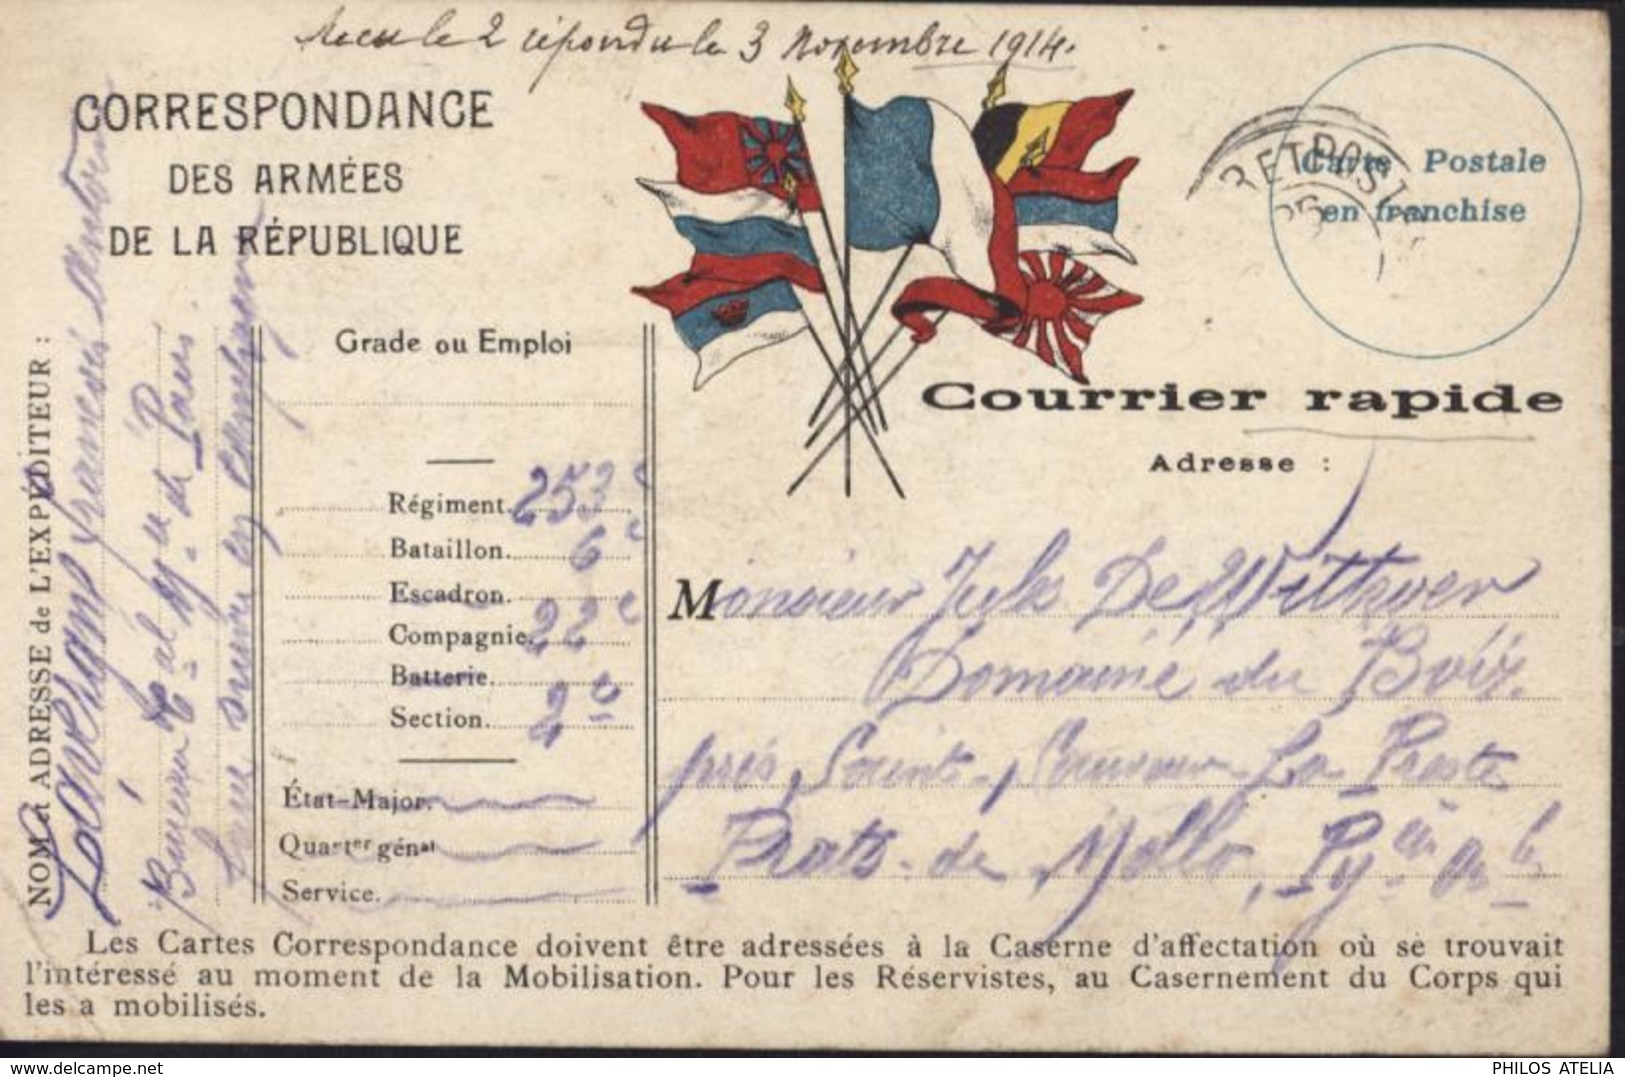 Recu le 2 répondu le 3 novembre 1914.
CORRESPONDANCE
DES ARMÉES
DE LA RÉPUBLIQUE
Carte Postale
en franchise
Courrier rapide
Adresse :
NOM et ADRESSE de L'EXPÉDITEUR :
François Antoine
Bureau Cal de Paris
en campagne
Grade ou Emploi
Régiment. 253e
Bataillon. 6e
Escadron.
Compagnie. 22e
Batterie.
Section. 2e
État-Major.
Quartier génal
Service.
Monsieur Jules De Witkoven
Domaine du Boix
près Saint-Sauveur La Preste
Prats-de Mollo, Pyén Oles
Les Cartes Correspondance doivent être adressées à la Caserne d'affectation où se trouvait
l'intéressé au moment de la Mobilisation. Pour les Réservistes, au Casernement du Corps qui
les a mobilisés.
delcampe.net
PHILOS ATELIA